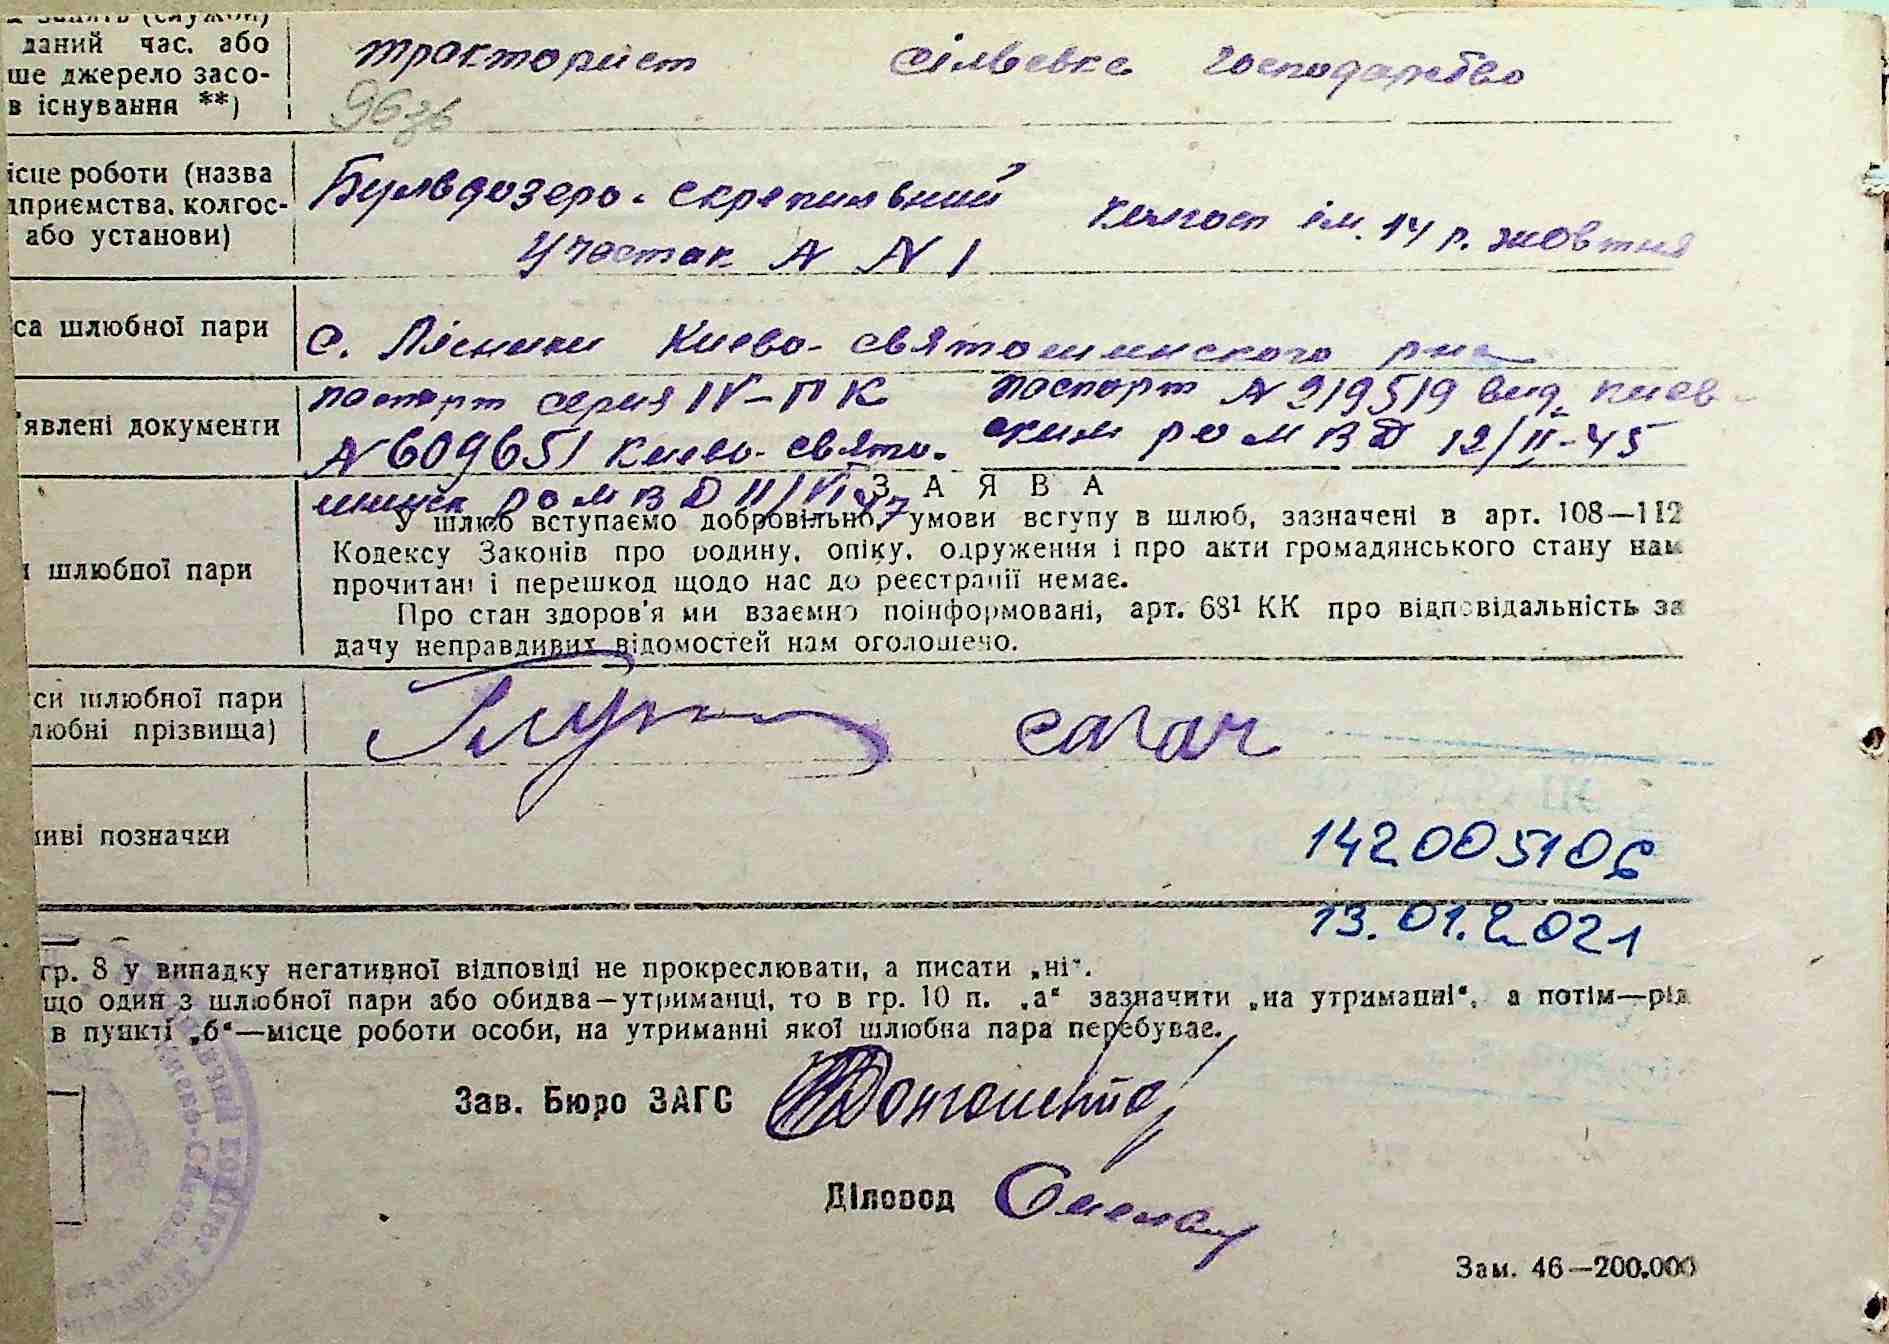 занять (служби)
даний час. або
ше джерело засо-
в існування **)
тракторист сільське господарство
96зв
ісце роботи (назва
дприємства, колгос-
або установи)
Бульдозеро-скрепильний колгосп ім. 14 р. жовтня
Участок № 1
са шлюбної пари
с. Лісники Киево-святошинского р-на
'явлені документи
паспорт серия IV-ПК паспорт № 219519 вид. Киев-
№ 609651 Киево-свято- ским РО МВД 12/II-45
шинск РО МВД
З А Я В А
У шлюб вступаємо добровільно, умови вступу в шлюб, зазначені в арт. 108—112
Кодексу Законів про родину, опіку, одруження і про акти громадянського стану нам
прочитані і перешкод щодо нас до реєстрації немає.
Про стан здоров'я ми взаємно поінформовані, арт. 68¹ КК про відповідальність за
дачу неправдивих відомостей нам оголошено.
и шлюбної пари
си шлюбної пари
любні прізвища)
сагач
иві позначки
142005106
13.01.2021
гр. 8 у випадку негативної відповіді не прокреслювати, а писати „ні“.
що один з шлюбної пари або обидва—утриманці, то в гр. 10 п. „а“ зазначити „на утриманні“, а потім—рід
в пункті „б“—місце роботи особи, на утриманні якої шлюбна пара перебуває.
Зав. Бюро ЗАГС
Діловод
Зам. 46—200.000